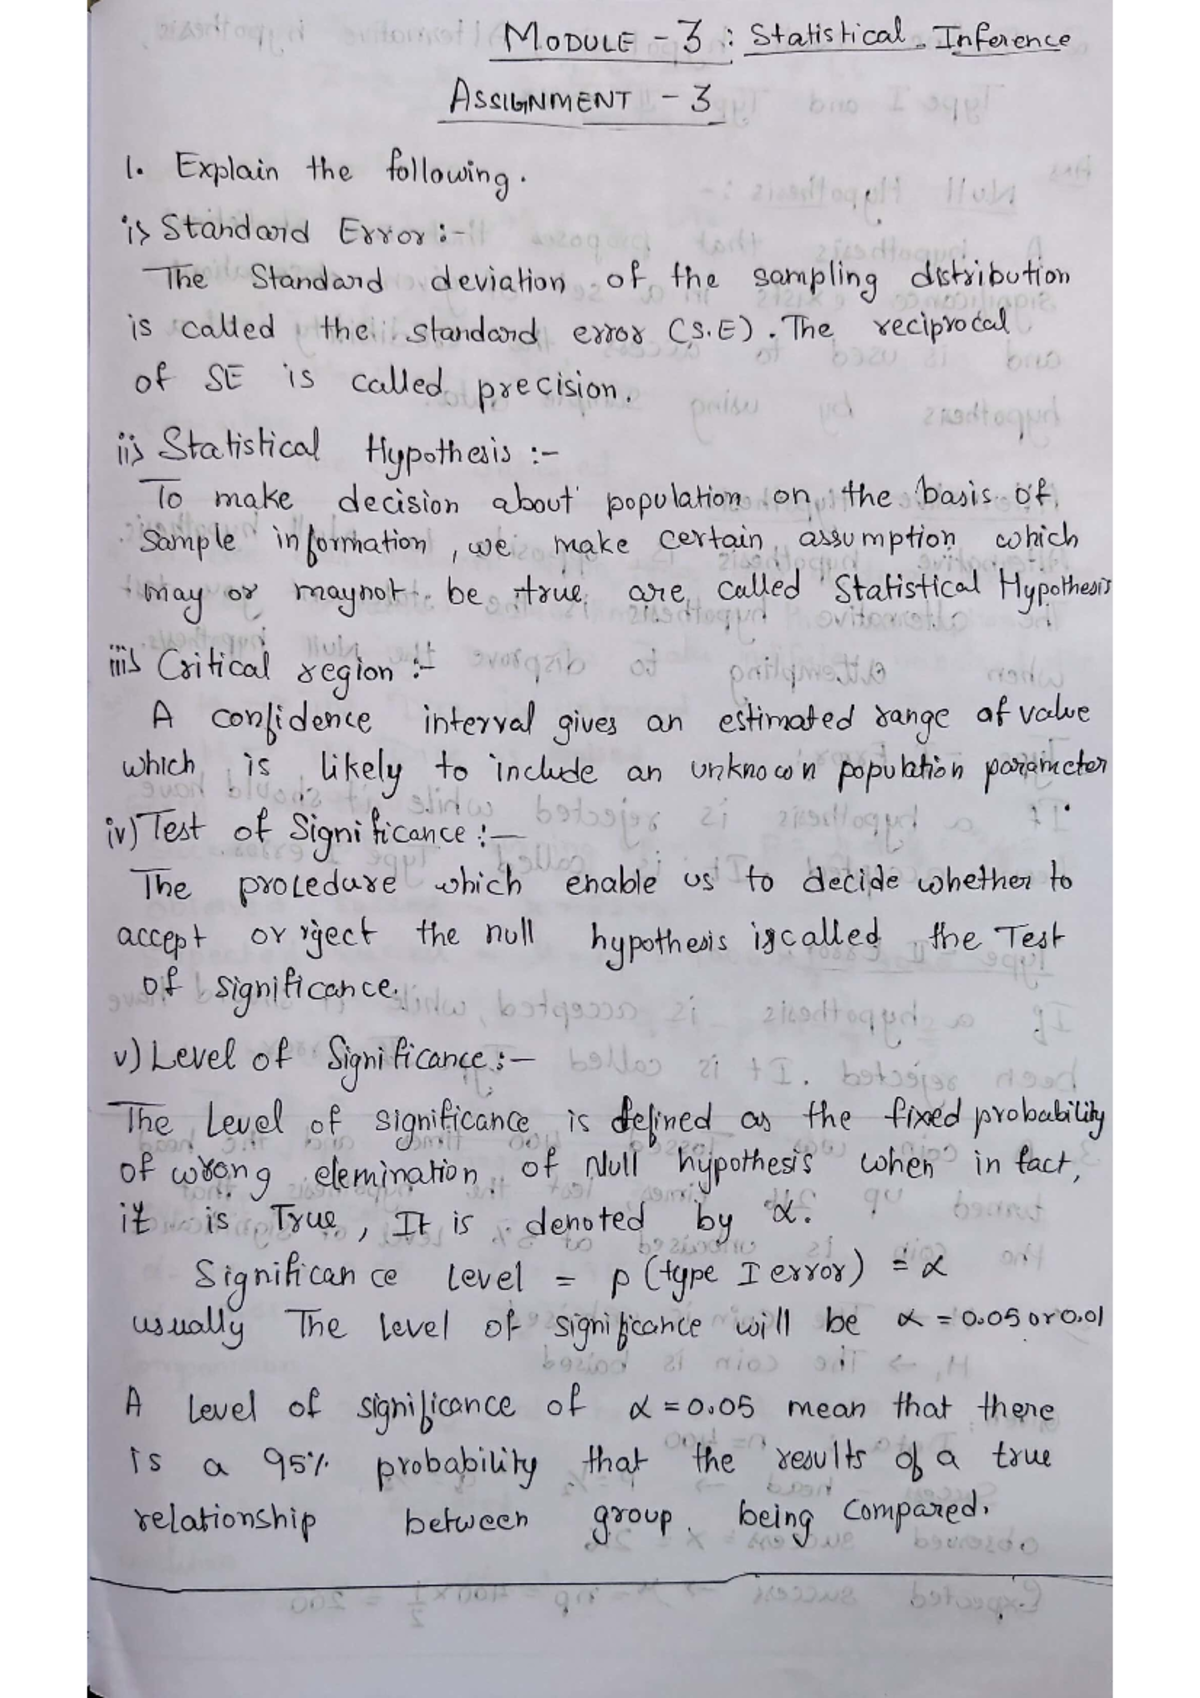 MODULE - 3 : Statistical Inference
ASSIGNMENT - 3
1. Explain the following.
i> Standard Error :-
The Standard deviation of the sampling distribution
is called the standard error (S.E). The reciprocal
of SE is called precision.
ii> Statistical Hypothesis :-
To make decision about population on the basis of
Sample information, we make certain assumption which
may or maynot be true are called Statistical Hypothesis
iii> Critical region :-
A confidence interval gives an estimated range of value
which is likely to include an unknown population parameter
.
iv) Test of Significance :-
The procedure which enable us to decide whether to
accept or rject the null hypothesis is called the Test
of significance.
v) Level of Significance :-
The Level of significance is defined as the fixed probability
of wrong elemination of Null hypothesis when in fact,
it is True, It is denoted by α.
Significance Level = p (type I error) = α
usually The level of significance will be α = 0.05 or 0.01
A Level of significance of α = 0.05 mean that there
is a 95% probability that the results of a true
relationship between group being compared.